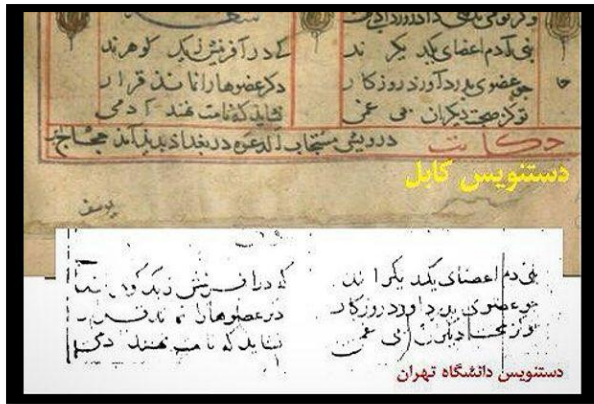 بنی آدم اعضای یکدیکرند که در آفرینش زیک کوهرند
جو عضوی بدرد آورد روزکار دکر عضوها را نماند قرار
تو کز محنت دیکران بی غمی نشاید که نامت نهند آدمی
حکایت درویشی مستجاب الدعوه در بغداد پدید آمد حجاج
دستنویس کابل
یوسف
بنی دم اعضای یکدیکراند که در افرینش زیک کوهرند
جو عضوی بدرد اورد روزکار دکر عضوها را نماند قرار
تو کز محنت دیکران بی غمی نشاید که نامت نهند دمی
دستنویس دانشگاه تهران